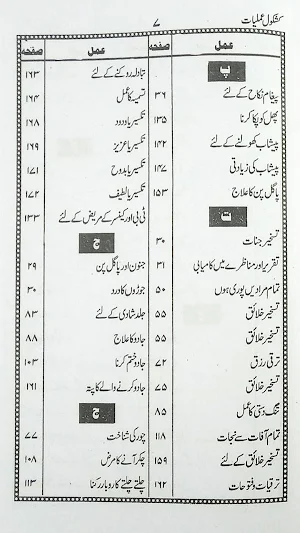 کشکول عملیات ۷
عمل صفحہ
پ
پیغام نکاح کے لئے ۳۶
پھل کو پکا کرنا ۱۳۵
پیشاب کھولنے کے لئے ۱۴۲
پیشاب کی زیادتی ۱۴۷
پاگل پن کا علاج ۱۵۳
ت
تسخیر جنات ۳۰
تقریر اور مناظرے میں کامیابی ۳۱
تمام مرادیں پوری ہوں ۵۰
تسخیر خلائق ۵۵
تسخیر خلائق ۵۵
ترقی رزق ۷۲
تسخیر خلائق ۷۵
تنگ دستی کا عمل ۸۵
تمام آفات سے نجات ۱۱۸
تسخیر خلائق کے لئے ۱۵۹
ترقیات و فتوحات ۱۶۲
عمل صفحہ
تبادلہ روکنے کے لئے ۱۶۳
تمیہ کا عمل ۱۶۴
تکسیر یا ودود ۱۶۸
تکسیر یا عزیز ۱۶۹
تکسیر یا بدوح ۱۷۱
تکسیر یا لطیف ۱۷۲
ٹی بی اور کینسر کے مریض کے لئے ۱۳۳
ج
جنون اور پاگل پن ۲۹
جوڑوں کا درد ۳۰
جلد شادی کے لئے ۸۳
جادو کا علاج ۸۸
جادو ختم کرنا ۱۰۳
جادو کرنے والے کا پتہ ۱۶۱
چور کی شناخت ۷۷
چکر آنے کا مرض ۱۰۸
چلتے چلتے کاروبار رکنا ۱۱۳